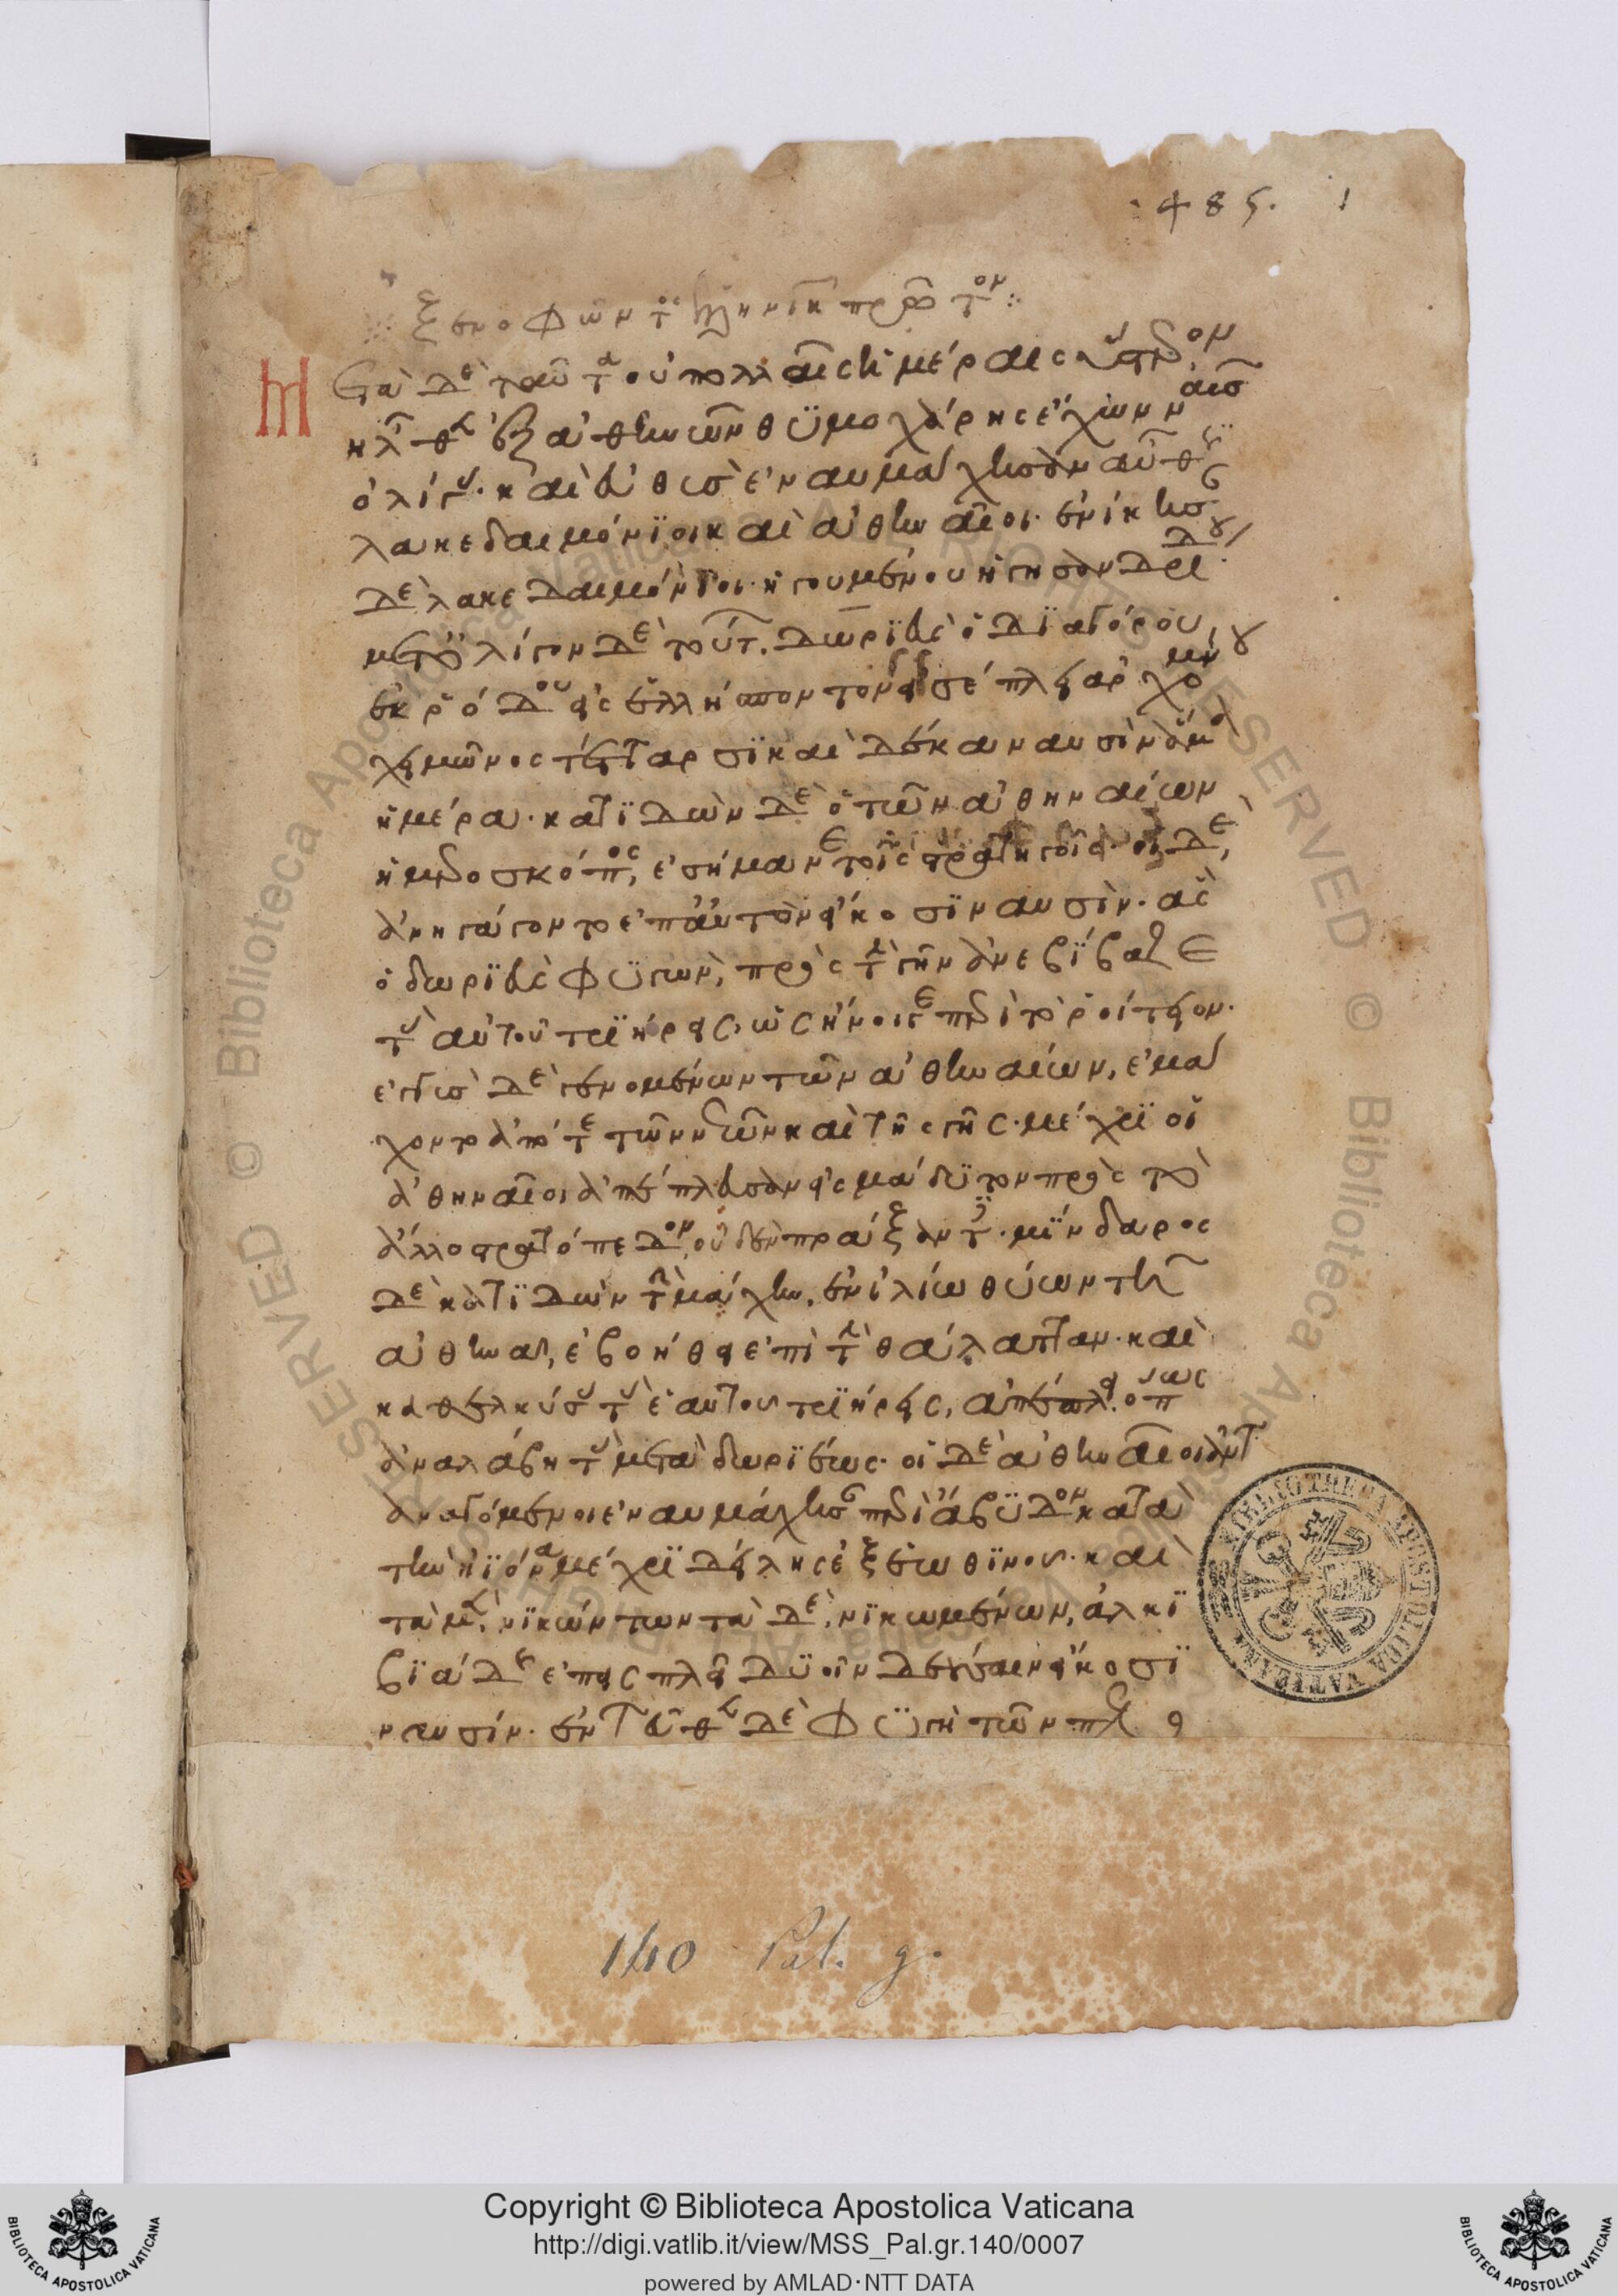 485. 1
ξενοφῶντος ἑλληνικῶν πρῶτον:
Μετὰ δὲ ταῦτα οὐ πολλαῖς ἡμέραις ὕστερον
ἦλθεν ἐξ ἀθηνῶν θϋμοχάρης ἔχων ναῦς
ὀλίγας. καὶ εὐθὺς ἐναυμάχησαν αὖθις
λακεδαιμόνϊοι καὶ ἀθηναῖοι. ἐνίκησαν
δὲ λακεδαιμόνϊοι ἡγουμένου ἡγησανδρίδου
μετ᾽ ὀλίγον δὲ τούτων. δωρϊεὺς ὁ δϊαγόρου,
ἐκ ῥόδου εἰς ἑλλήσποντον εἰσέπλει ἀρχομένου
χειμῶνος τέτταρσϊ καὶ δέκα ναυσὶν ἅμα
ἡμέρα. κατϊδὼν δὲ ὁ τῶν ἀθηναίων
ἡμεροσκόπος, ἐσήμανε τοῖς στρατηγοῖς. οἱ δὲ,
ἀνηγάγοντο ἐπ᾽ αὐτὸν εἴκοσϊν ναυσὶν. ἃς
ὁ δωρϊεὺς φϋγὼν, πρὸς τὴν γῆν ἀνεβίβαζε
τὰς αὐτοῦ τρϊήρεις, ὡς ἤνοιγε περὶ τὸ ῥοίτειον.
ἐγγὺς δὲ γενομένων τῶν ἀθηναίων, ἐμά
χοντο ἀπό τε τῶν νεῶν καὶ τῆς γῆς. μέχρϊ οἱ
ἀθηναῖοι ἀπέπλευσαν εἰς μάδϋτον πρὸς τὸ
ἄλλο στρατόπεδον, οὐδὲν πράξαντες. μίνδαρος
δὲ κατϊδὼν τὴν μάχην, ἐν ἰλίω θύων τῆ
ἀθηνᾶ, ἐβοήθει ἐπὶ τὴν θάλατταν. καὶ
καθελκύσας τὰς ἑαυτοῦ τρϊήρεις, ἀπέπλει ὅπως
ἀναλάβη τὰς μετὰ δωρϊέως. οἱ δὲ ἀθηναῖοι ἀντ
αναγόμενοι ἐναυμάχησαν περὶ ἄβϋδον κατὰ
τὴν ἠϊόνα μέχρϊ δείλης ἐξ ἑωθϊνοῦ. καὶ
τὰ μὲν, νϊκώντων τὰ δὲ, νϊκωμένων, ἀλκϊ
βϊάδης ἐπεισπλεῖ δϋοῖν δεούσαιν εἴκοσϊ
ναυσίν. ἐντεῦθεν δὲ φϋγὴ τῶν πελ
140 Pal. g.
Copyright © Biblioteca Apostolica Vaticana
http://digi.vatlib.it/view/MSS_Pal.gr.140/0007
powered by AMLAD·NTT DATA